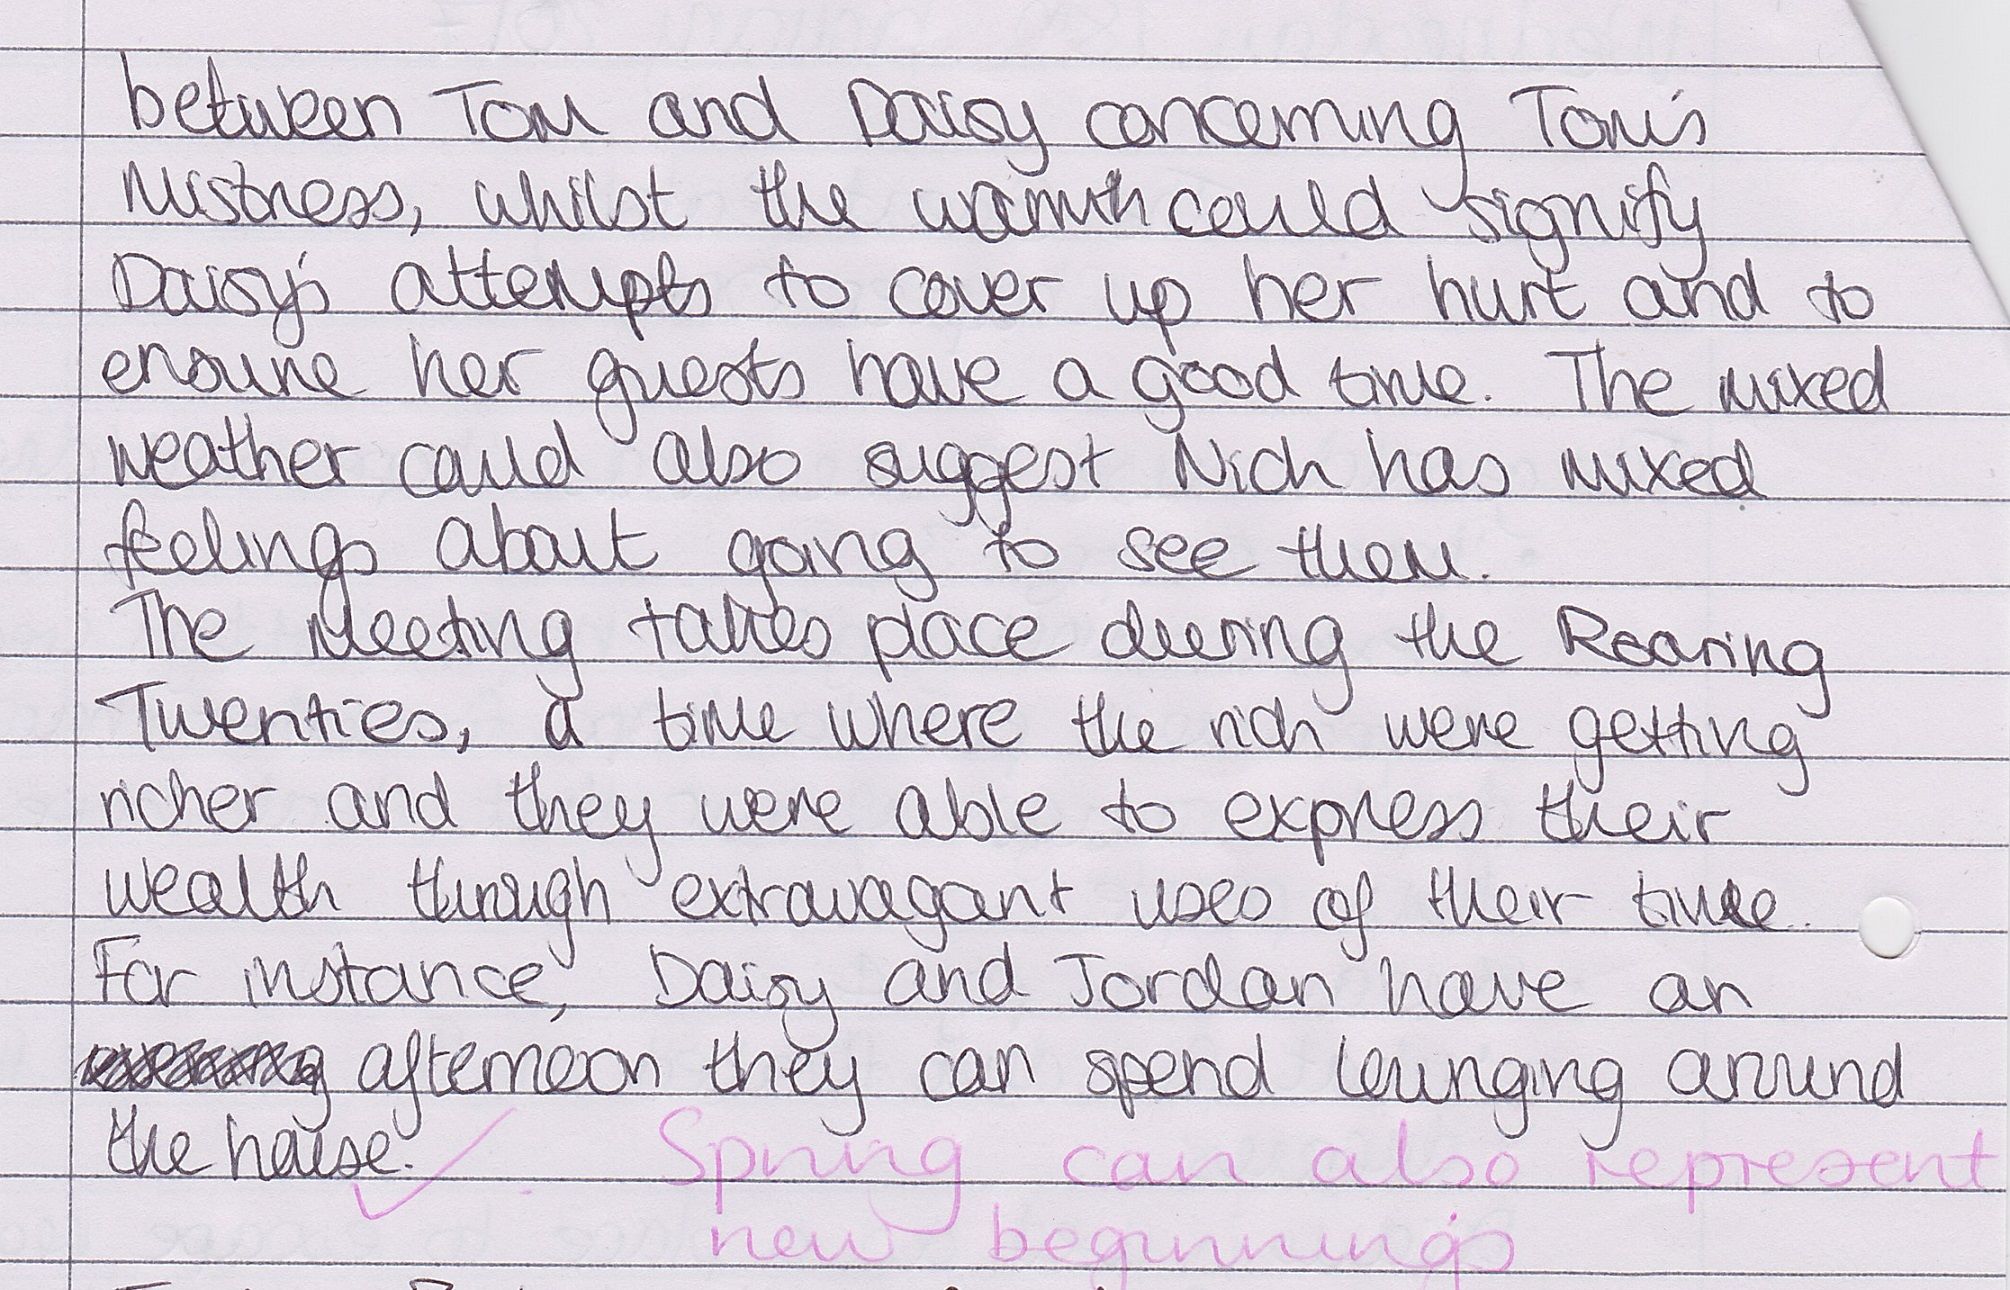 between Tom and Daisy concerning Tom's
mistress, whilst the warmth could signify
Daisy's attempts to cover up her hurt and to
ensure her guests have a good time. The mixed
weather could also suggest Nick has mixed
feelings about going to see them.
The meeting takes place during the Roaring
Twenties, a time where the rich were getting
richer and they were able to express their
wealth through extravagant uses of their time.
For instance, Daisy and Jordan have an
afternoon they can spend lounging around
the house.
Spring can also represent
new beginnings